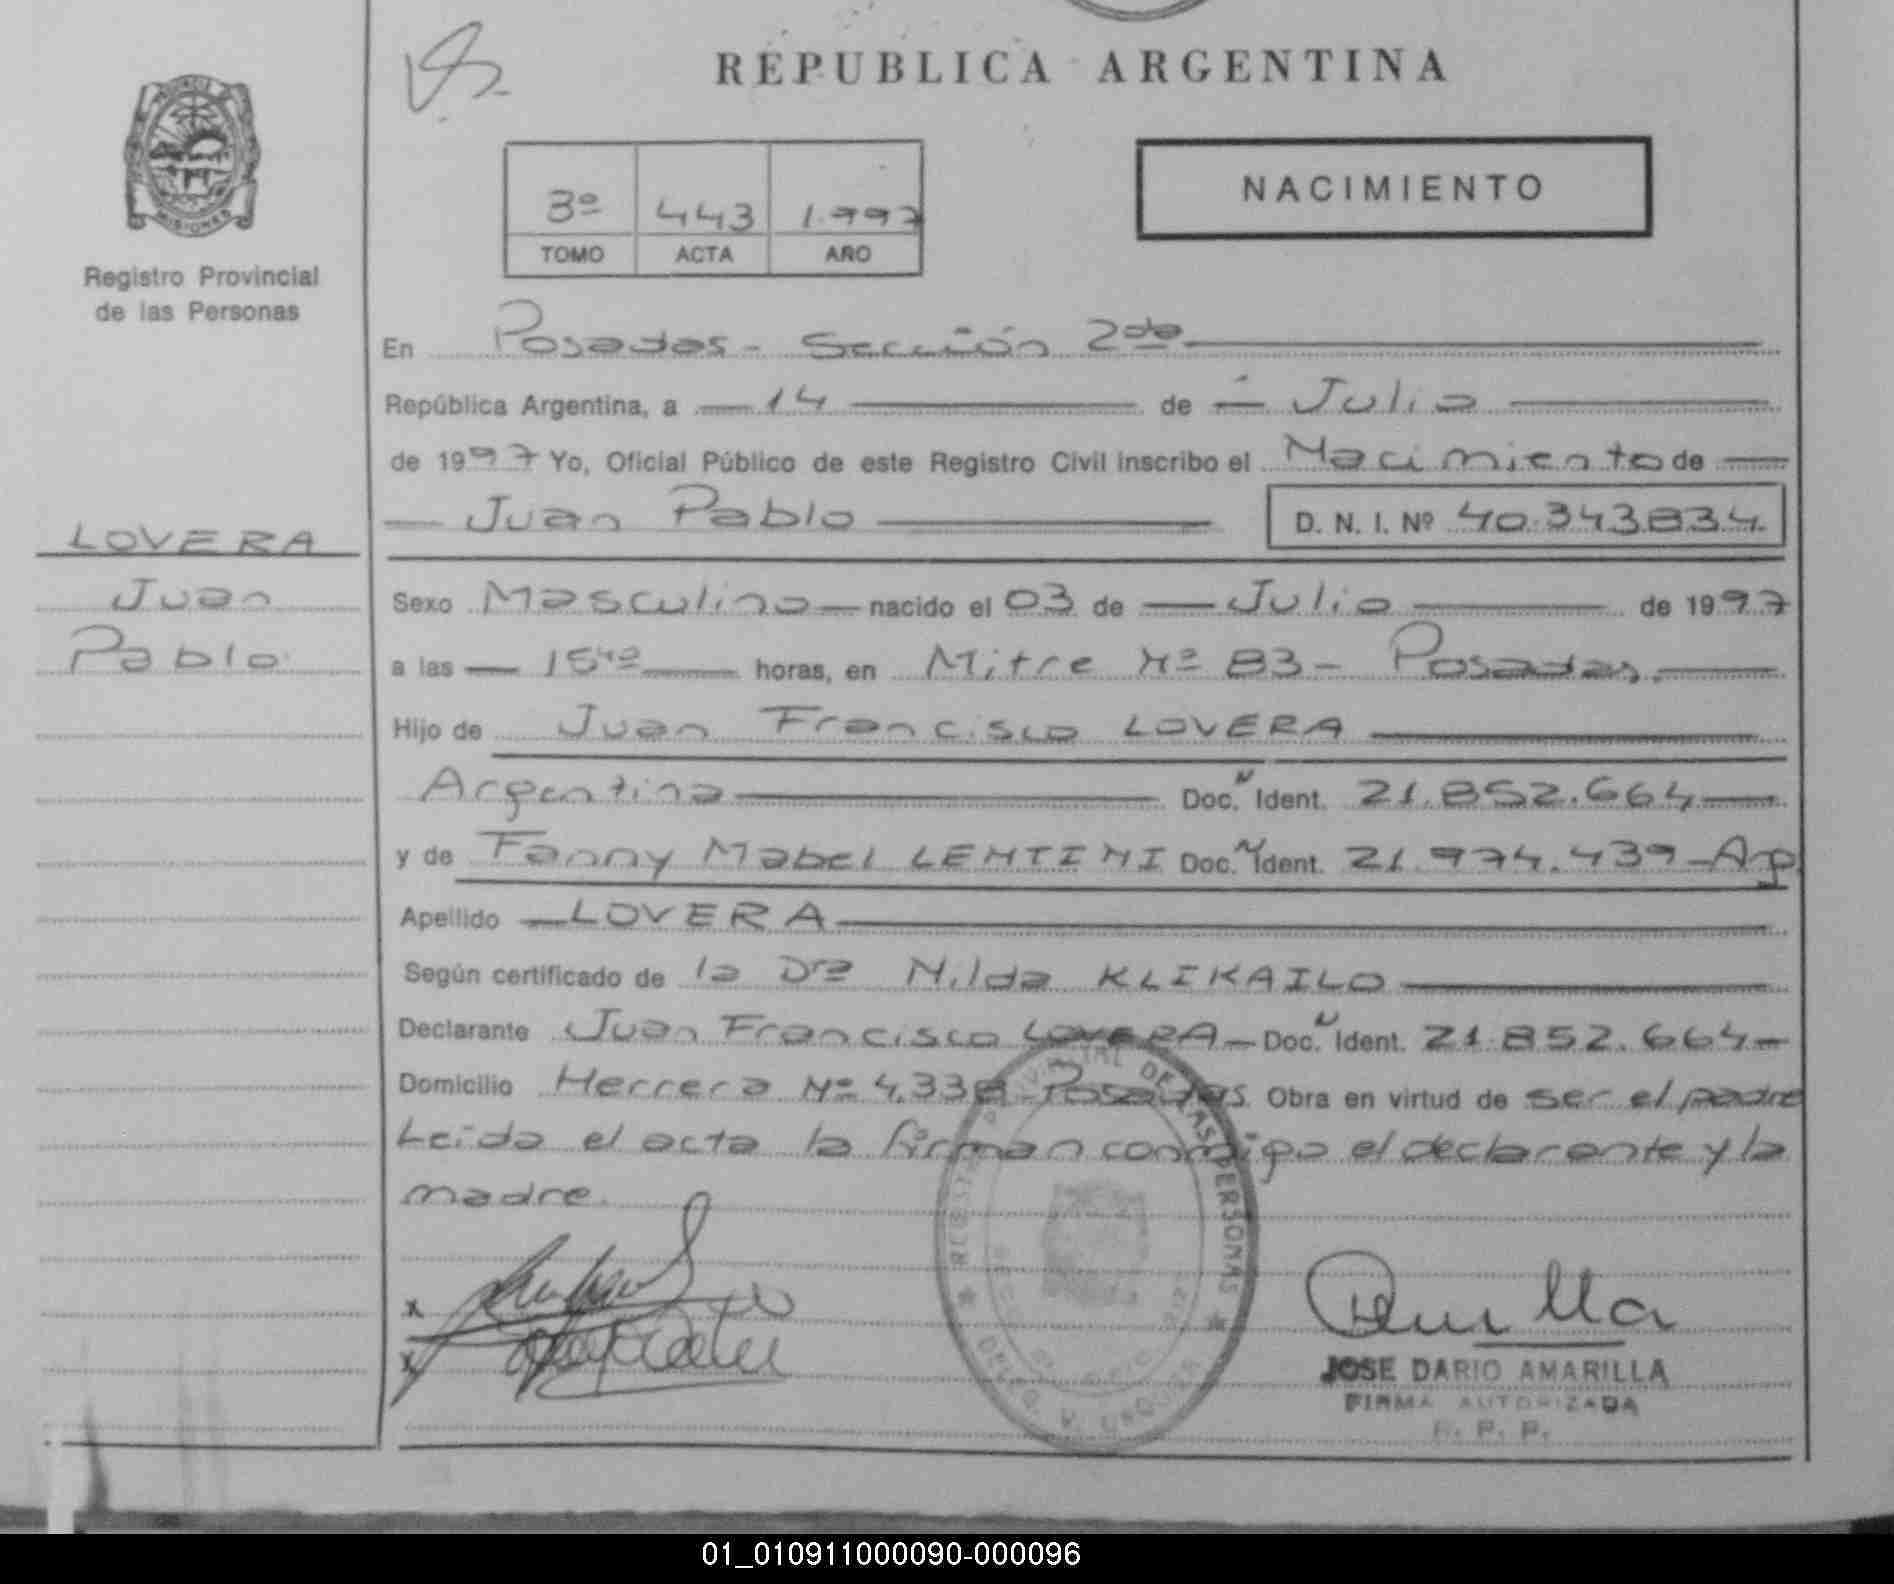 REPUBLICA ARGENTINA
MISIONES
Registro Provincial
de las Personas
3º 443 1.997
TOMO ACTA AÑO
NACIMIENTO
En Posadas - Sección 2da
República Argentina, a 14 de Julio
de 1997 Yo, Oficial Público de este Registro Civil inscribo el Nacimiento de
Juan Pablo D. N. I. Nº 40.343.834
LOVERA
Juan
Pablo
Sexo Masculino nacido el 03 de Julio de 1997
a las horas, en Mitre Nº 83 - Posadas.
Hijo de Juan Francisco LOVERA
Argentina Doc. N Ident. 21.852.664
y de Fanny Mabel LENTINI Doc. N Ident. 21.974.439 - Arg
Apellido LOVERA
Según certificado de la Dra Nilda KLIKAILO
Declarante Juan Francisco LOVERA - Doc. N Ident. 21.852.664 -
Domicilio Herrera Nº 4.338 Posadas Obra en virtud de ser el padre
Leida el acta la firman conmigo el declarante y la
madre.
x
x
REGISTRO PROVINCIAL DE LAS PERSONAS
JOSE DARIO AMARILLA
FIRMA AUTORIZADA
R. P. P.
01_010911000090-000096